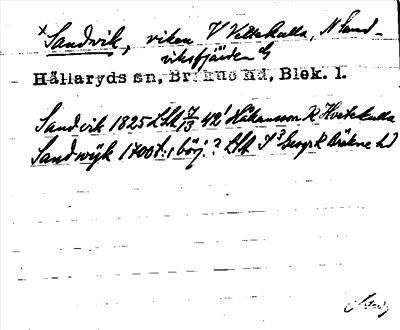 Sandvik, viken V Vettekulla, N Sand-
viksfjärden
Hällaryds sn, Bräkne hd, Blek. l.
Sandvik 1825 LSA 7/13 42 Håkansson K Hvetekulla
Sandwijk 1700t. , böj.? LSA Geogr K Bräkne hd